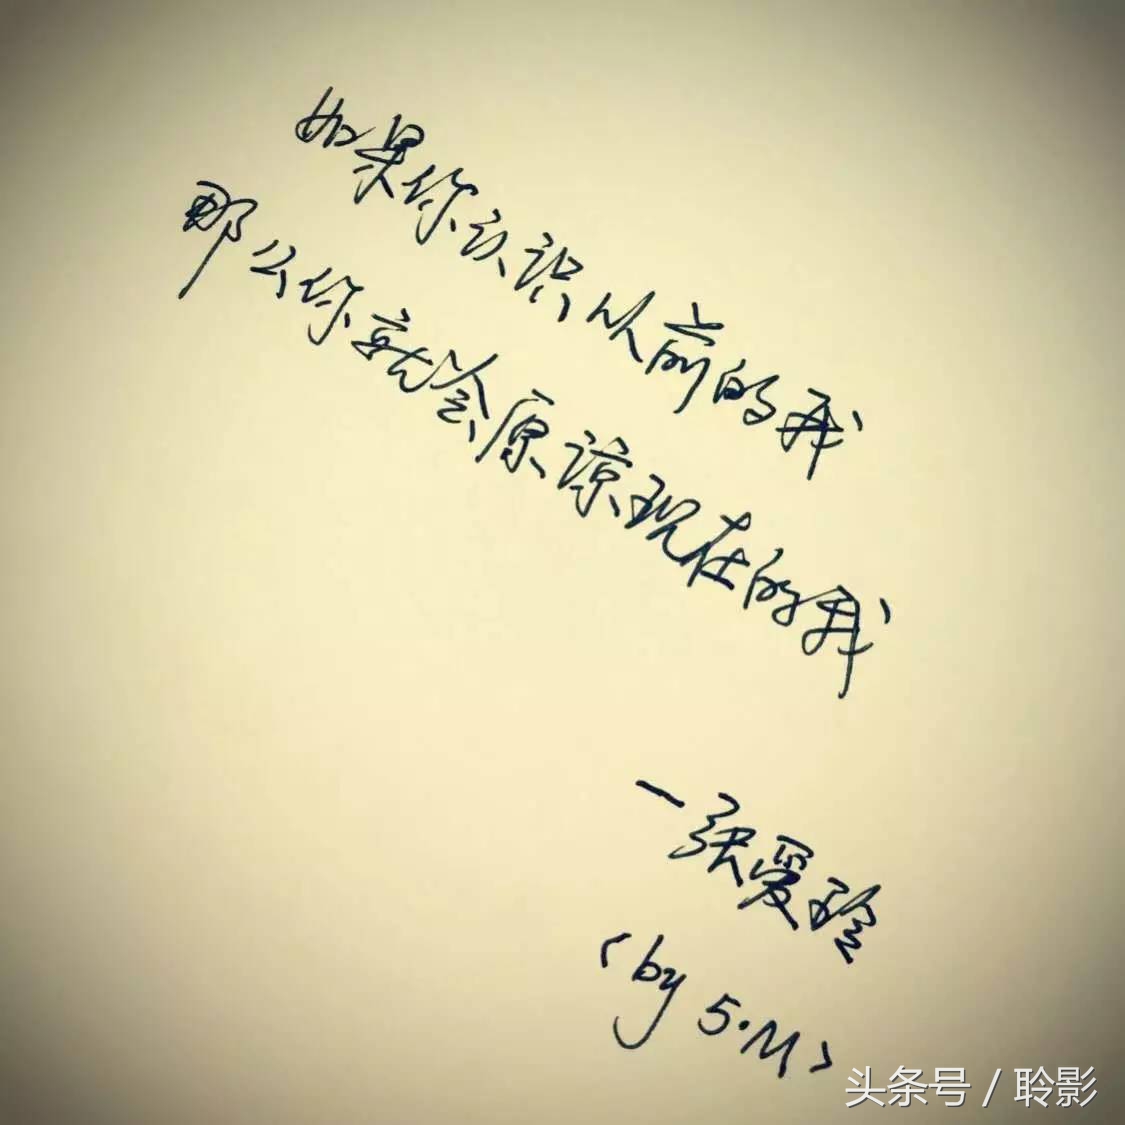 如果你认识从前的我
那么你就会原谅现在的我
—张爱玲
(by S·M)
头条号 / 聆影